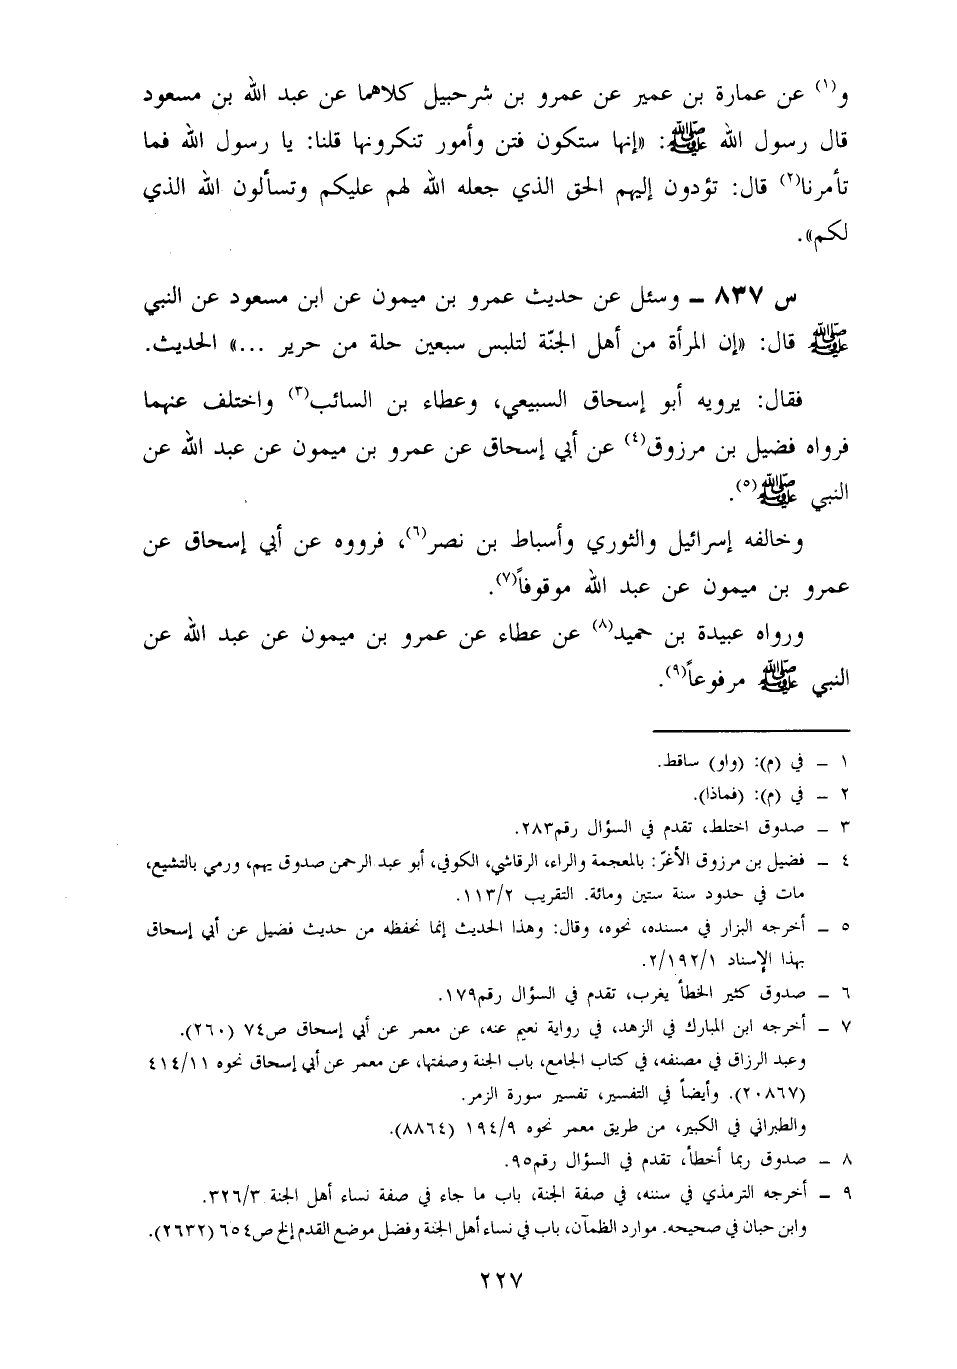 و(١) عن عمارة بن عمير عن عمرو بن شرحبيل كلاهما عن عبد الله بن مسعود
قال رسول الله ﷺ: «إنها ستكون فتن وأمور تنكرونها قلنا: يا رسول الله فما
تأمرنا(٢) قال: تؤدون إليهم الحق الذي جعله الله لهم عليكم وتسألون الله الذي
لكم».
س ٨٣٧ ـ وسئل عن حديث عمرو بن ميمون عن ابن مسعود عن النبي
ﷺ قال: «إن المرأة من أهل الجنّة لتلبس سبعين حلة من حرير ...» الحديث.
فقال: يرويه أبو إسحاق السبيعي، وعطاء بن السائب(٣) واختلف عنهما
فرواه فضيل بن مرزوق(٤) عن أبي إسحاق عن عمرو بن ميمون عن عبد الله عن
النبي ﷺ(٥).
وخالفه إسرائيل والثوري وأسباط بن نصر(٦)، فرووه عن أبي إسحاق عن
عمرو بن ميمون عن عبد الله موقوفاً(٧).
ورواه عبيدة بن حميد(٨) عن عطاء عن عمرو بن ميمون عن عبد الله عن
النبي ﷺ مرفوعاً(٩).
١ ـ في (م): (واو) ساقط.
٢ ـ في (م): (فماذا).
٣ ـ صدوق اختلط، تقدم في السؤال رقم٢٨٣.
٤ ـ فضيل بن مرزوق الأغرّ: بالمعجمة والراء، الرقاشي، الكوفي، أبو عبد الرحمن صدوق يهم، ورمي بالتشيع،
مات في حدود سنة ستين ومائة. التقريب ١١٣/٢.
٥ ـ أخرجه البزار في مسنده، نحوه، وقال: وهذا الحديث إنما نحفظه من حديث فضيل عن أبي إسحاق
بهذا الإسناد ٢/١٩٢/١.
٦ ـ صدوق كثير الخطأ يغرب، تقدم في السؤال رقم١٧٩.
٧ ـ أخرجه ابن المبارك في الزهد، في رواية نعيم عنه، عن معمر عن أبي إسحاق ص٧٤ (٢٦٠).
وعبد الرزاق في مصنفه، في كتاب الجامع، باب الجنة وصفتها، عن معمر عن أبي إسحاق نحوه ٤١٤/١١
(٢٠٨٦٧). وأيضاً في التفسير، تفسير سورة الزمر.
والطبراني في الكبير، من طريق معمر نحوه ١٩٤/٩ (٨٨٦٤).
٨ ـ صدوق ربما أخطأ، تقدم في السؤال رقم٩٥.
٩ ـ أخرجه الترمذي في سننه، في صفة الجنة، باب ما جاء في صفة نساء أهل الجنة ٣٢٦/٣.
وابن حبان في صحيحه. موارد الظمآن، باب في نساء أهل الجنة وفضل موضع القدم إلخ ص٦٥٤ (٢٦٣٢).
٢٢٧